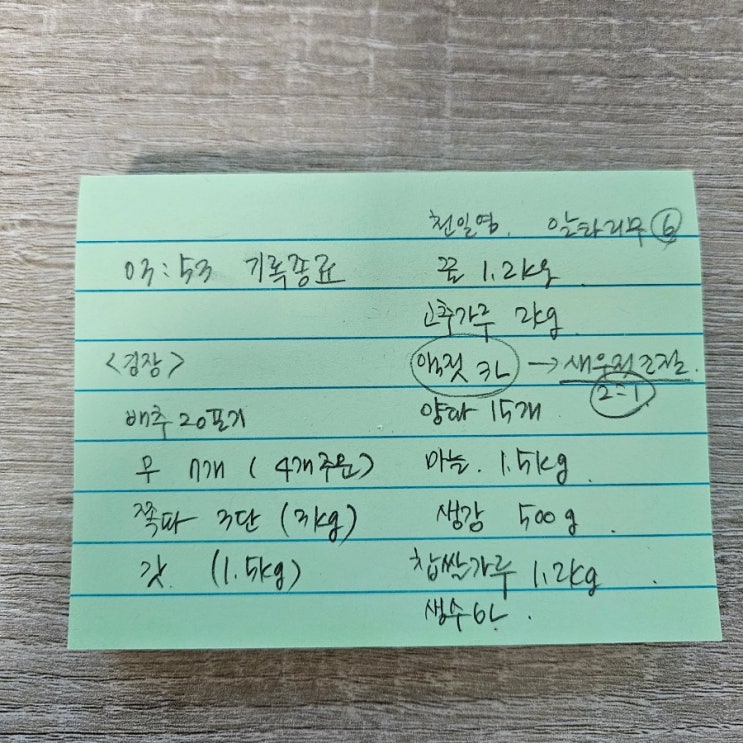 천일염. 알타리무 ⑥
03:53 기록종료
꿀 1.2kg
고추가루 2kg
<김장>
액젓 3L → 새우젓조절.
2=1
배추 20포기
양파 15개
무 7개 ( 4개주문)
마늘. 1.5kg
쪽파 3단 (3kg)
생강 500g.
갓. (1.5kg)
찹쌀가루 1.2kg.
생수 6L.